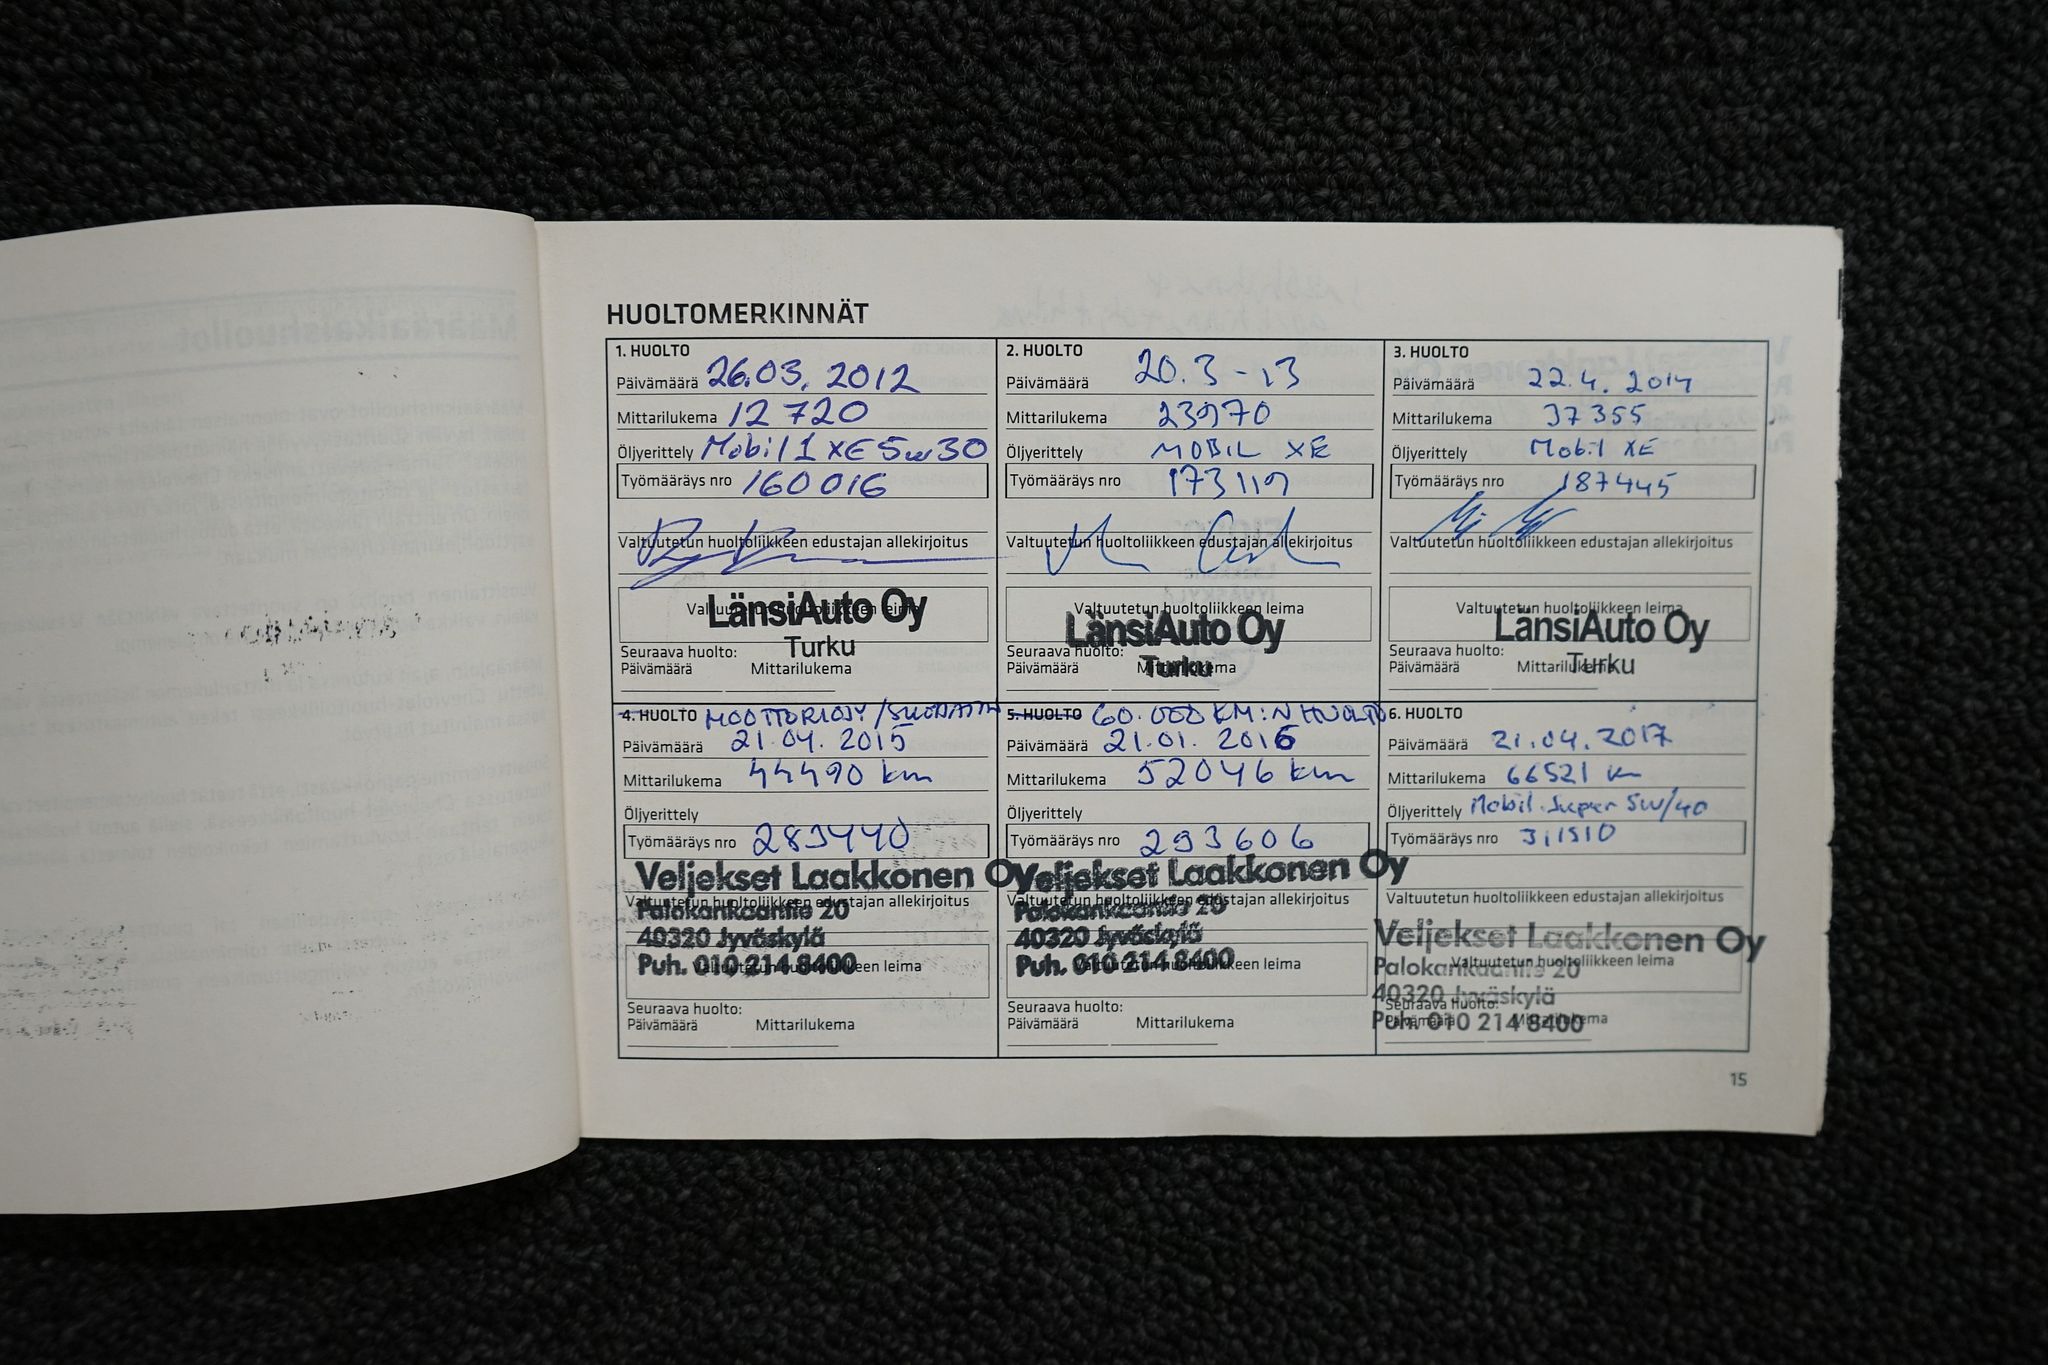 HUOLTOMERKINNÄT
1. HUOLTO
Päivämäärä 26.03.2012
Mittarilukema 12720
Öljyerittely Mobil 1 XE 5w30
Työmääräys nro 160016
Valtuutetun huoltoliikkeen edustajan allekirjoitus
Valtuutetun huoltoliikkeen leima
LänsiAuto Oy
Turku
Seuraava huolto:
Päivämäärä Mittarilukema
2. HUOLTO
Päivämäärä 20.3-13
Mittarilukema 23970
Öljyerittely MOBIL XE
Työmääräys nro 173119
Valtuutetun huoltoliikkeen edustajan allekirjoitus
Valtuutetun huoltoliikkeen leima
LänsiAuto Oy
Turku
Seuraava huolto:
Päivämäärä Mittarilukema
3. HUOLTO
Päivämäärä 22.4.2014
Mittarilukema 37355
Öljyerittely Mobil XE
Työmääräys nro 187445
Valtuutetun huoltoliikkeen edustajan allekirjoitus
Valtuutetun huoltoliikkeen leima
LänsiAuto Oy
Turku
Seuraava huolto:
Päivämäärä Mittarilukema
4. HUOLTO
Päivämäärä 21.04.2015
Mittarilukema 44490 km
Öljyerittely
Työmääräys nro 283440
Veljekset Laakkonen Oy
Valtuutetun huoltoliikkeen edustajan allekirjoitus
Palokankaantie 20
40320 Jyväskylä
Puh. 010 214 8400
Valtuutetun huoltoliikkeen leima
Seuraava huolto:
Päivämäärä Mittarilukema
5. HUOLTO 60.000 KM:N HUOLTO
Päivämäärä 21.01.2016
Mittarilukema 52046 km
Öljyerittely
Työmääräys nro 293606
Veljekset Laakkonen Oy
Valtuutetun huoltoliikkeen edustajan allekirjoitus
Palokankaantie 20
40320 Jyväskylä
Puh. 010 214 8400
Valtuutetun huoltoliikkeen leima
Seuraava huolto:
Päivämäärä Mittarilukema
6. HUOLTO
Päivämäärä 21.04.2017
Mittarilukema 66521 km
Öljyerittely Mobil Super 5w/40
Työmääräys nro
Valtuutetun huoltoliikkeen edustajan allekirjoitus
Veljekset Laakkonen Oy
Valtuutetun huoltoliikkeen leima
Palokankaantie 20
40320 Jyväskylä
Seuraava huolto:
Puh. 010 214 8400
Päivämäärä Mittarilukema
15